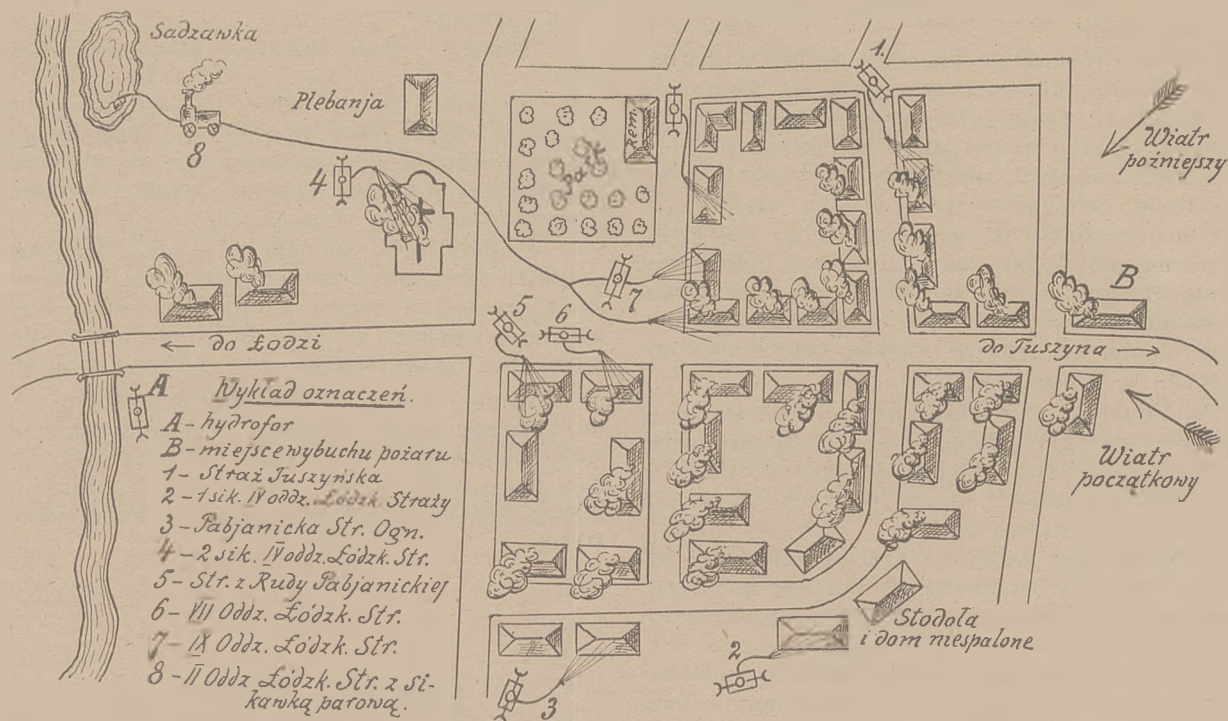 Sadzawka
8
Plebanja
4
Rem.
Park
1.
Wiatr
poźniejszy
7
5
6
B
← do Łodzi
do Tuszyna →
Wiatr
początkowy
A
Wykład oznaczeń.
A - hydrofor
B - miejsce wybuchu pożaru
1 - Straż Tuszyńska
2 - 1 sik. IV oddz. Łódzk. Straży
3 - Pabjanicka Str. Ogn.
4 - 2 sik. IV oddz. Łódzk. Str.
5 - Str. z Rudy Pabjanickiej
6 - VII Oddz. Łódzk. Str.
7 - IX Oddz. Łódzk. Str.
8 - II Oddz Łódzk. Str. z si-
kawką parową.
Stodoła
i dom niespalone
2
3